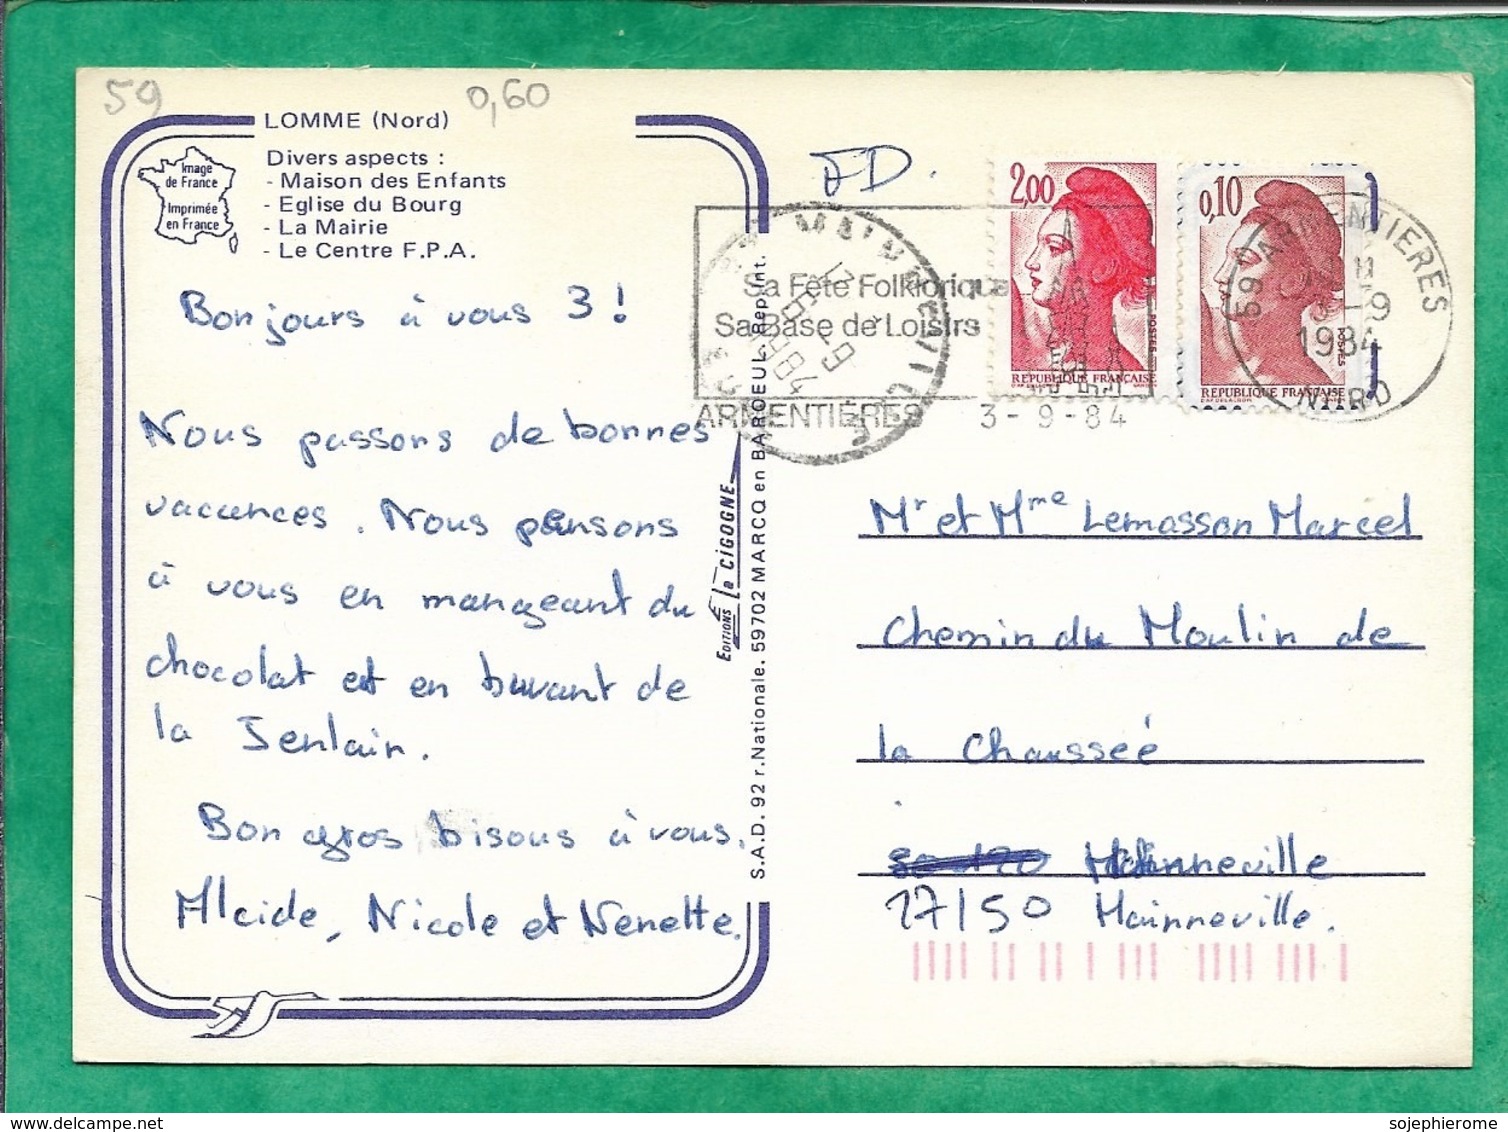 59
0,60
LOMME (Nord)
Image
de France
Imprimée
en France
Divers aspects :
- Maison des Enfants
- Eglise du Bourg
- La Mairie
- Le Centre F.P.A.
Bonjours à vous 3 !
Nous passons de bonnes
vacances. Nous pensons
à vous en mangeant du
chocolat et en buvant de
la Jenlain.
Bon gros bisous à vous.
Alcide, Nicole et Nenette.
Editions la CIGOGNE
S.A.D. 92 r. Nationale. 59702 MARCQ en BAROEUL. Reprint.
FD.
Sa Fête Folklorique
Sa Base de Loisirs
ARMENTIÈRES
3-9-84
2,00
POSTES
REPUBLIQUE FRANÇAISE
0,10
POSTES
REPUBLIQUE FRANÇAISE
59 ARMENTIERES
-9
1984
NORD
5-9
1984
Mr et Mme Lemasson Marcel
Chemin du Moulin de
la Chausseé
Mainneville
27150 Mainneville.
sojephierome